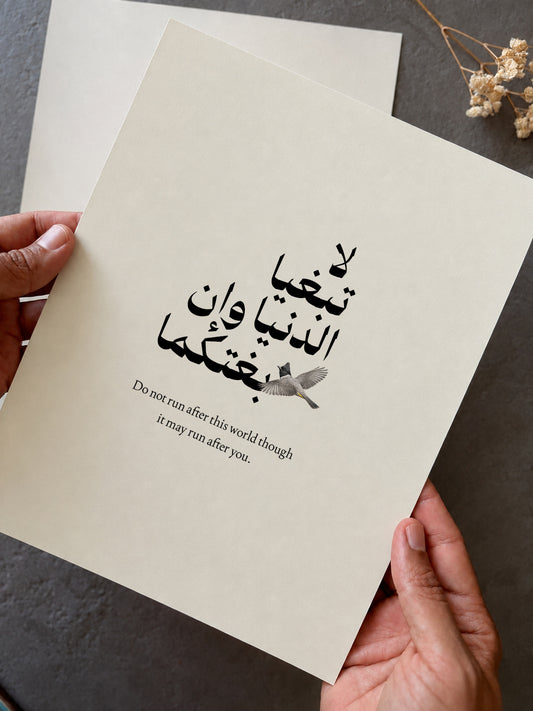 لا
تبغيا
الدنيا وان
بغتكما
Do not run after this world though
it may run after you.